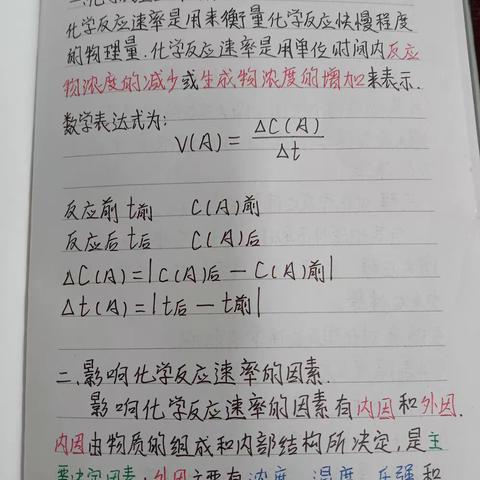 化学反应速率是用来衡量化学反应快慢程度
的物理量.化学反应速率是用单位时间内反应
物浓度的减少或生成物浓度的增加来表示.
数学表达式为:
V(A) = ΔC(A) / Δt
反应前 t前 C(A)前
反应后 t后 C(A)后
ΔC(A)=|C(A)后 — C(A)前|
Δt(A)=|t后 — t前|
二.影响化学反应速率的因素.
影响化学反应速率的因素有内因和外因.
内因由物质的组成和内部结构所决定,是主
要决定因素;外因主要有浓度、温度、压强和